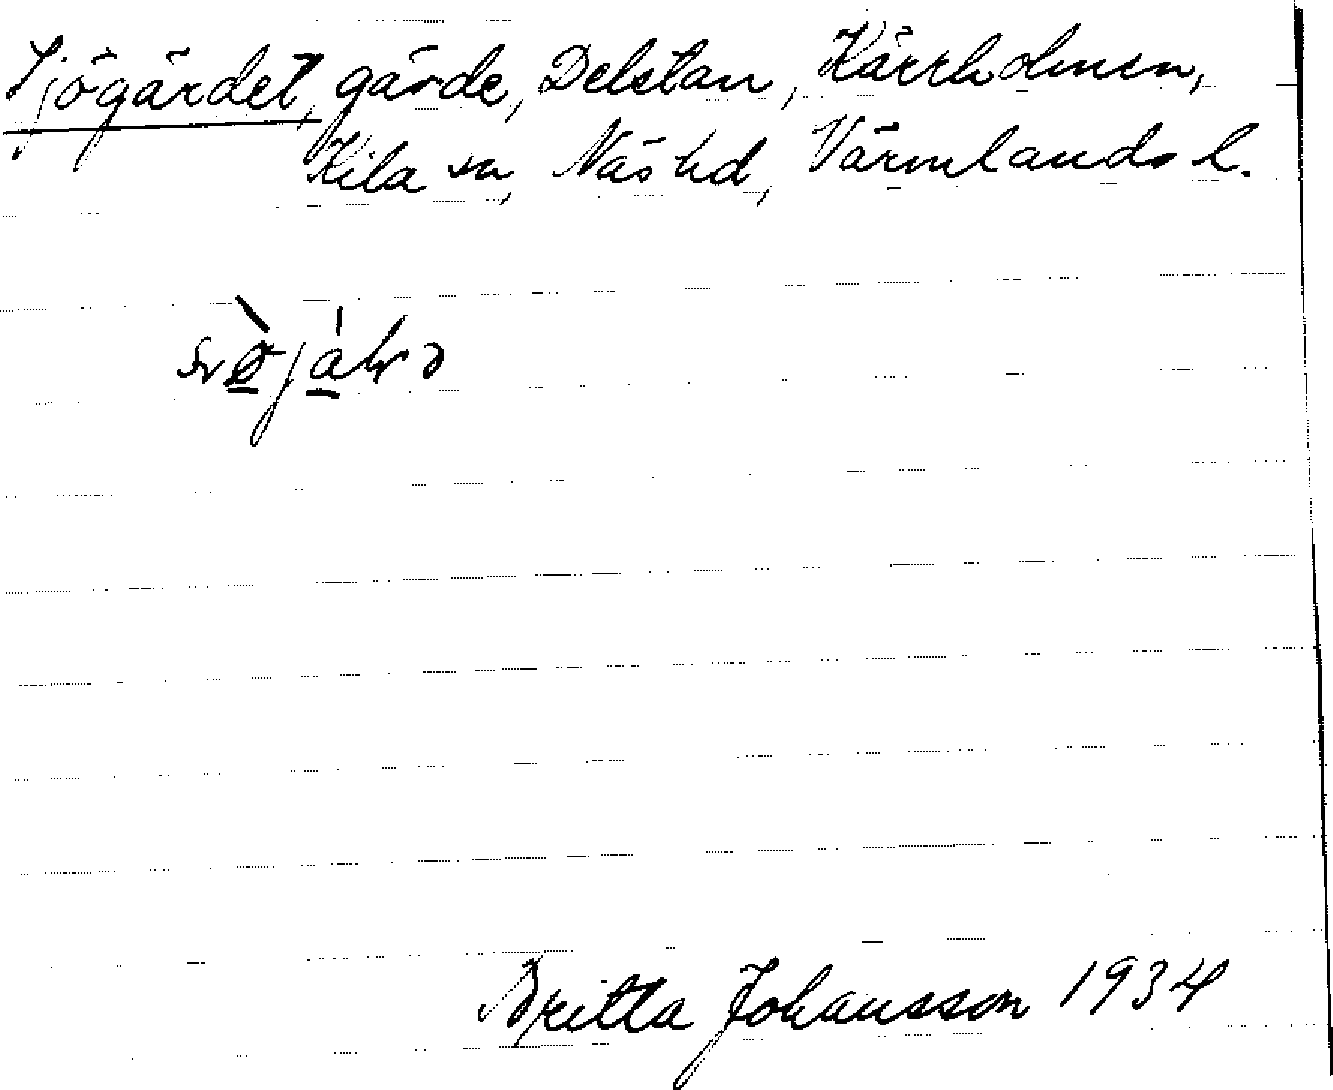 Sjögärdet, gärde, Delstan, Kärrholmen,
Kila sn, Näs hd, Värmlands l.
Britta Johansson 1934